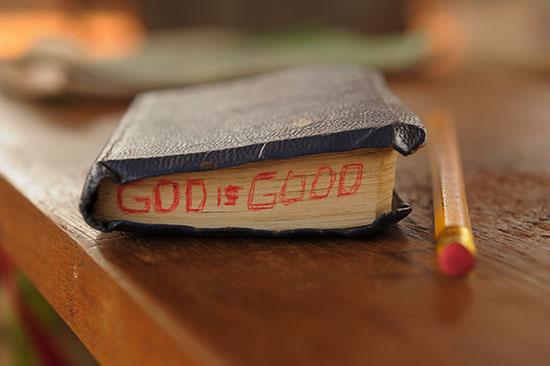 GOD is GOOD